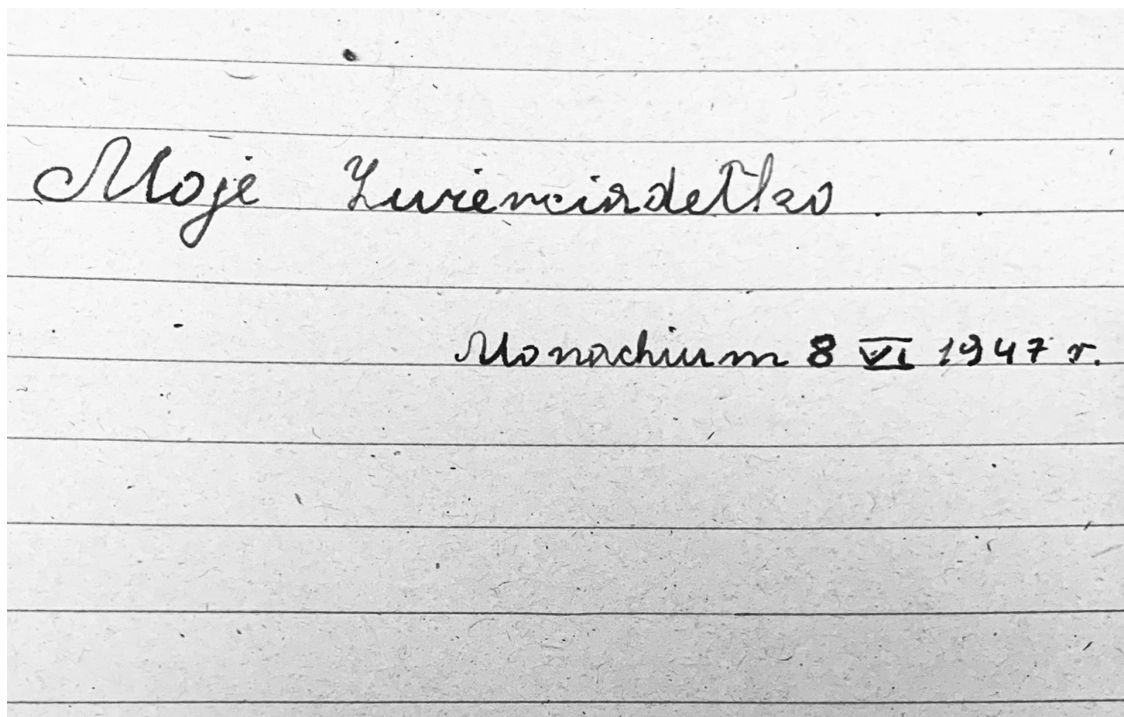 Moje Zwierciadełko
Monachium 8 VI 1947 r.